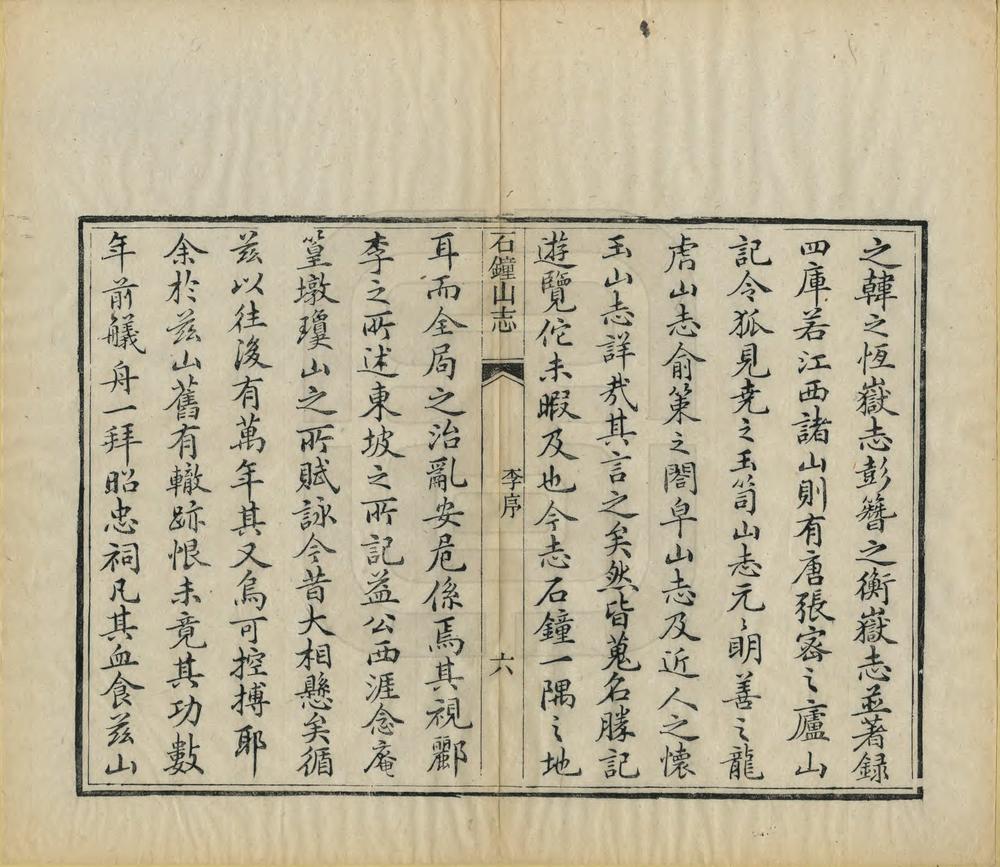 之韓之恆嶽志彭簪之衡嶽志並著錄
四庫若江西諸山則有唐張密之廬山
記令狐見堯之玉笥山志元元明善之龍
虎山志俞策之閤皁山志及近人之懷
玉山志詳哉其言之矣然皆蒐名勝記
遊覽佗未暇及也今志石鐘一隅之地
石鐘山志
李序
六
耳而全局之治亂安危係焉其視酈
李之所述東坡之所記益公西涯念庵
篁墩瓊山之所賦詠今昔大相懸矣循
茲以往後有萬年其又烏可控摶耶
余於茲山舊有轍跡恨未竟其功數
年前艤舟一拜昭忠祠凡其血食茲山